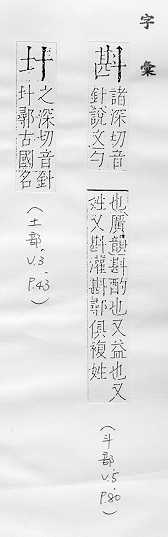 字彙
斟 諸深切音
針說文勺
也廣韻斟酌也又益也又
姓又斟灌斟鄩俱複姓
(斗部 V.5. P.80)
㘰 之深切音針
㘰鄩古國名
(土部 V.3. P.43)